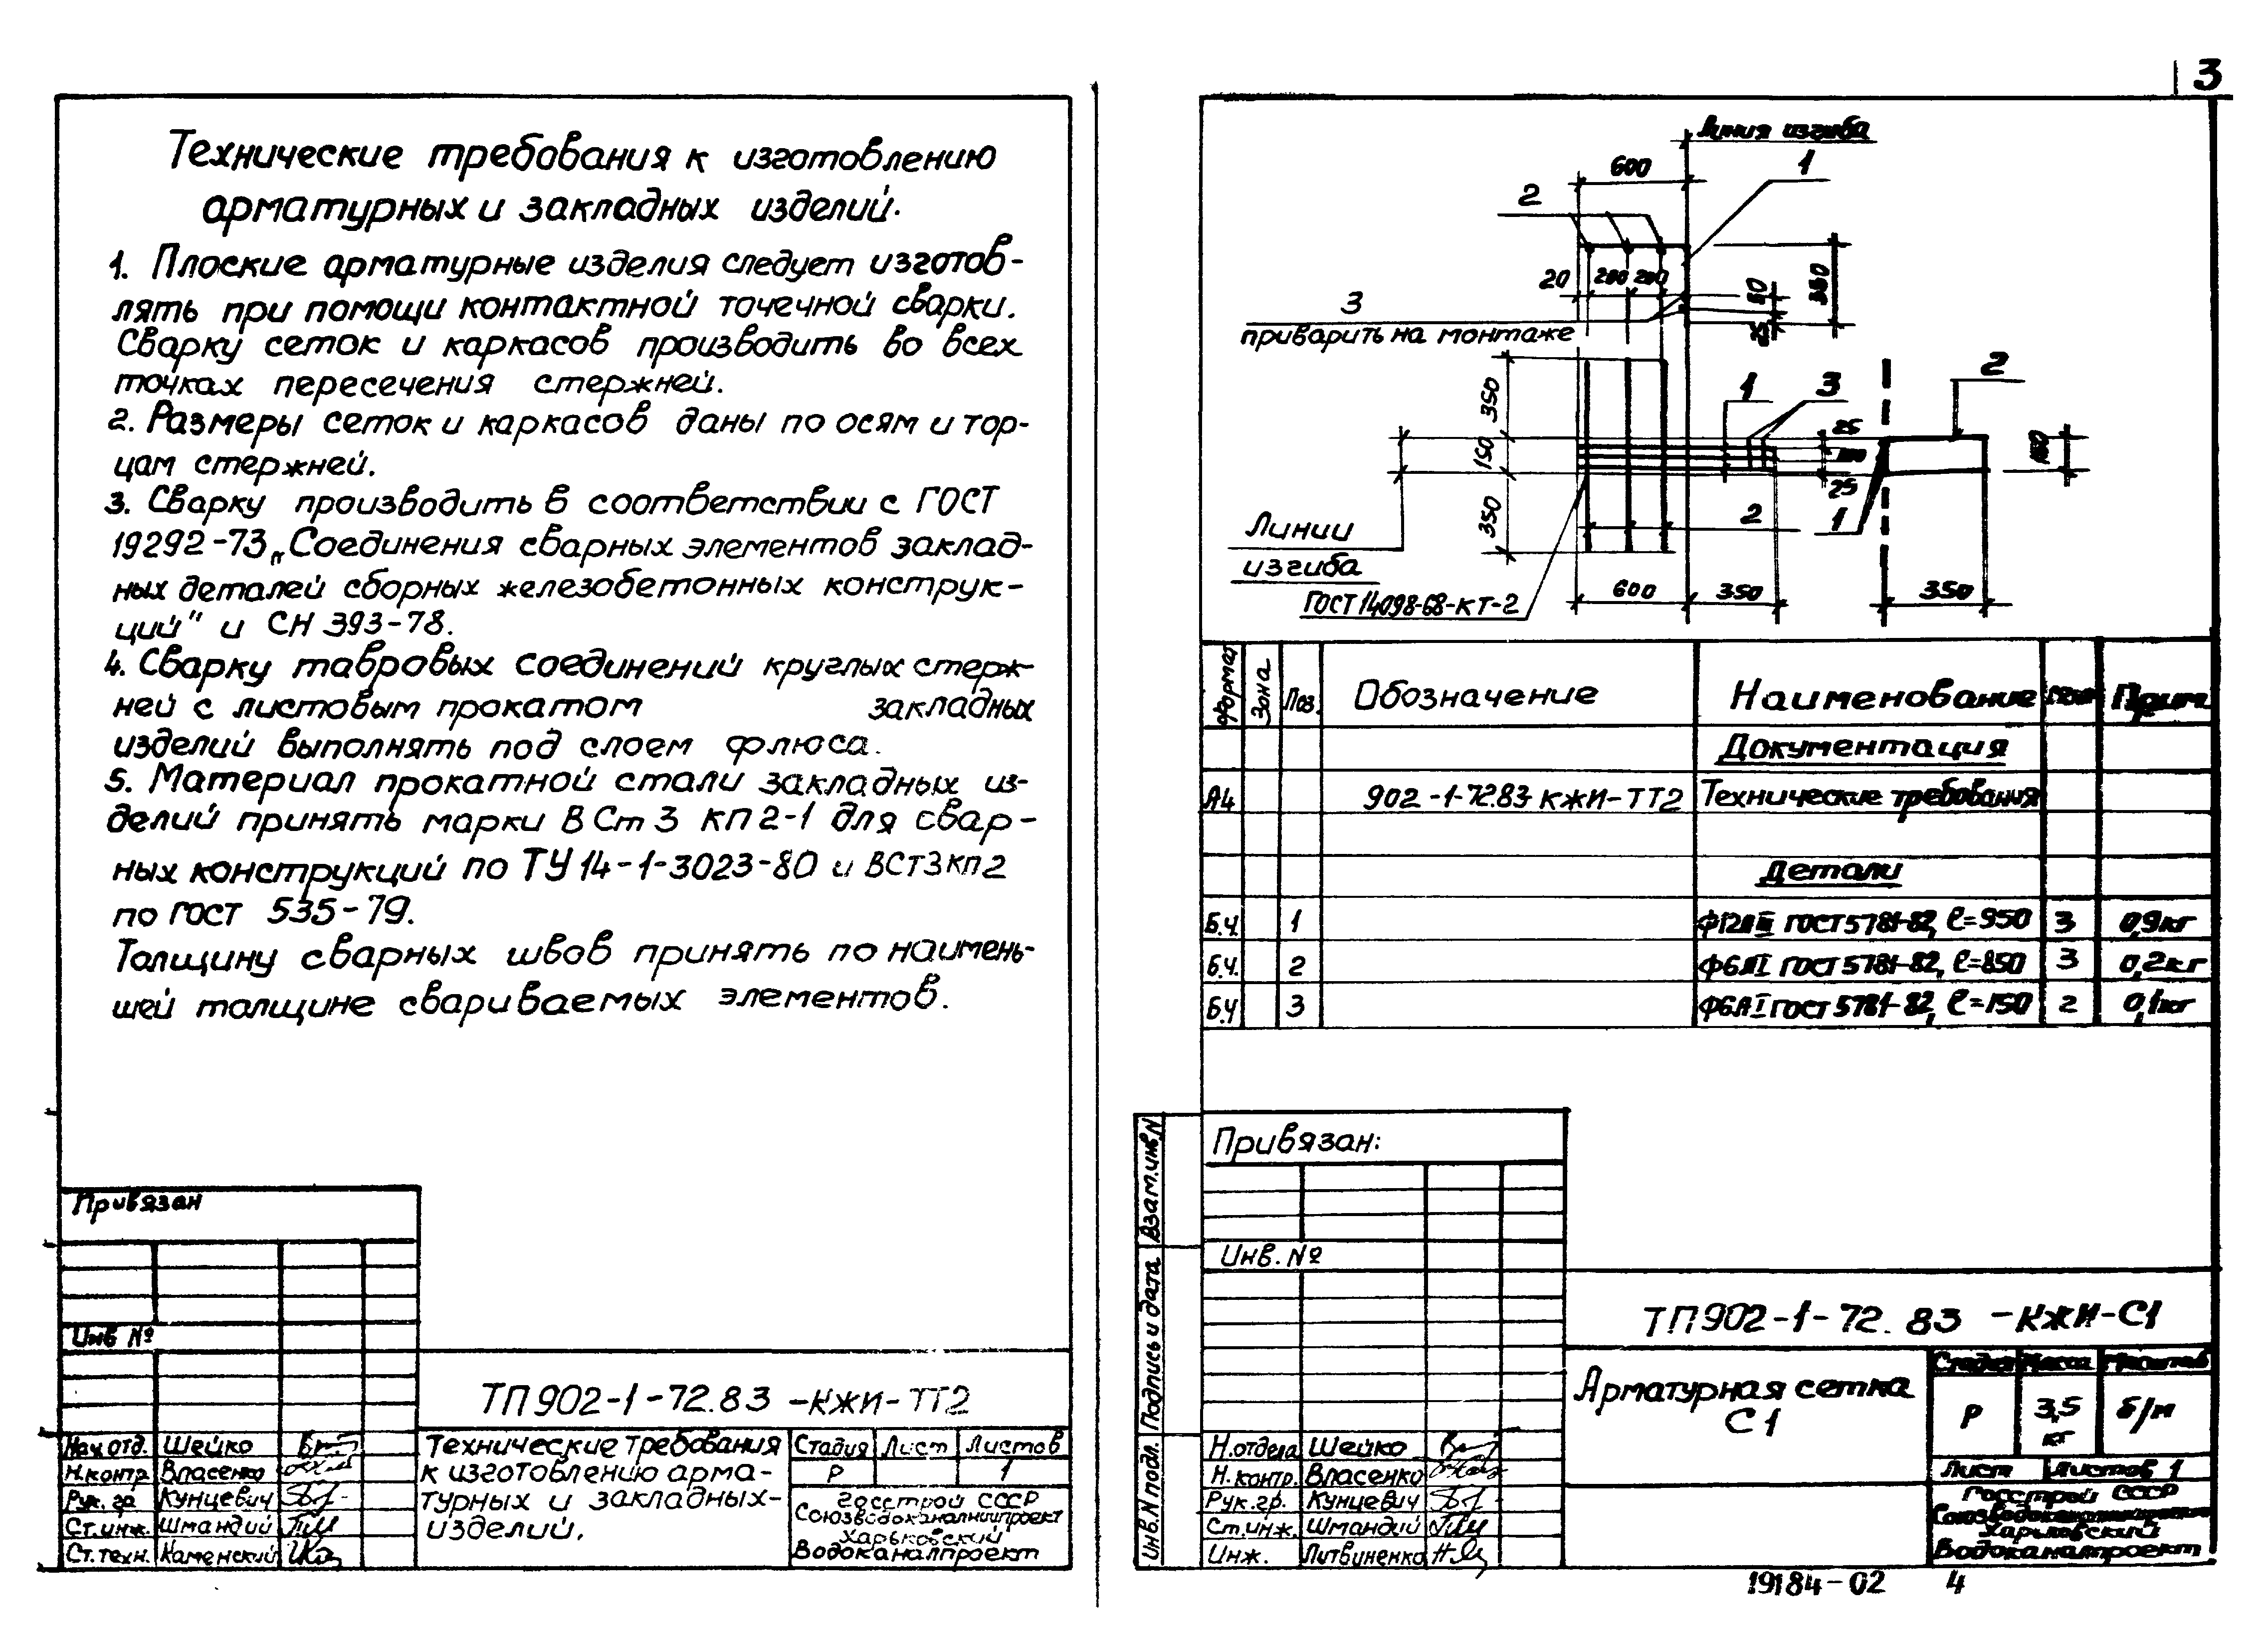 3
Технические требования к изготовлению
арматурных и закладных изделий.
1. Плоские арматурные изделия следует изготов-
лять при помощи контактной точечной сварки.
Сварку сеток и каркасов производить во всех
точках пересечения стержней.
2. Размеры сеток и каркасов даны по осям и тор-
цам стержней.
3. Сварку производить в соответствии с ГОСТ
19292-73 „Соединения сварных элементов заклад-
ных деталей сборных железобетонных конструк-
ций" и СН 393-78.
4. Сварку тавровых соединений круглых стерж-
ней с листовым прокатом закладных
изделий выполнять под слоем флюса.
5. Материал прокатной стали закладных из-
делий принять марки ВСт3 кп2-1 для свар-
ных конструкций по ТУ 14-1-3023-80 и ВСт3кп2
по ГОСТ 535-79.
Толщину сварных швов принять по наимень-
шей толщине свариваемых элементов.
Привязан
Инв №
ТП 902-1-72.83 -КЖИ-ТТ2
Нач.отд. Шейко
Н.контр Власенко
Рук. гр Кунцевич
Ст.инж. Шмандий
Ст.техн. Каменский
Технические требования
к изготовлению арма-
турных и закладных-
изделий.
Стадия Лист Листов
Р 1
Госстрой СССР
Союзводоканалниипроект
Харьковский
Водоканалпроект
Линия изгиба
600
1
2
20 200 200
50
350
25
3
приварить на монтаже
350
150
350
1 3
2
25
100
25
150
2
1
Линии
изгиба
ГОСТ 14098-68-КТ-2
600 350 350
Формат Зона Поз. Обозначение Наименование Прим.
Документация
А4 902-1-72.83 КЖИ-ТТ2 Технические требования
Детали
Б.Ч. 1 Ф12АIII ГОСТ 5781-82, ℓ=950 3 0,9кг
Б.Ч. 2 Ф6АI ГОСТ 5781-82, ℓ=850 3 0,2кг
Б.Ч 3 Ф6АI ГОСТ 5781-82, ℓ=150 2 0,1кг
Взам.инв.N
Подпись и дата
Инв.N подл.
Привязан:
Инв. №
ТП 902-1-72.83 -КЖИ-С1
Н.отдела Шейко
Н.контр. Власенко
Рук.гр. Кунцевич
Ст.инж. Шмандий
Инж. Литвиненко
Арматурная сетка
С1
Стадия Масса Масштаб
Р 3,5 кг б/м
Лист Листов 1
Госстрой СССР
Союзводоканалниипроект
Харьковский
Водоканалпроект
19184-02 4